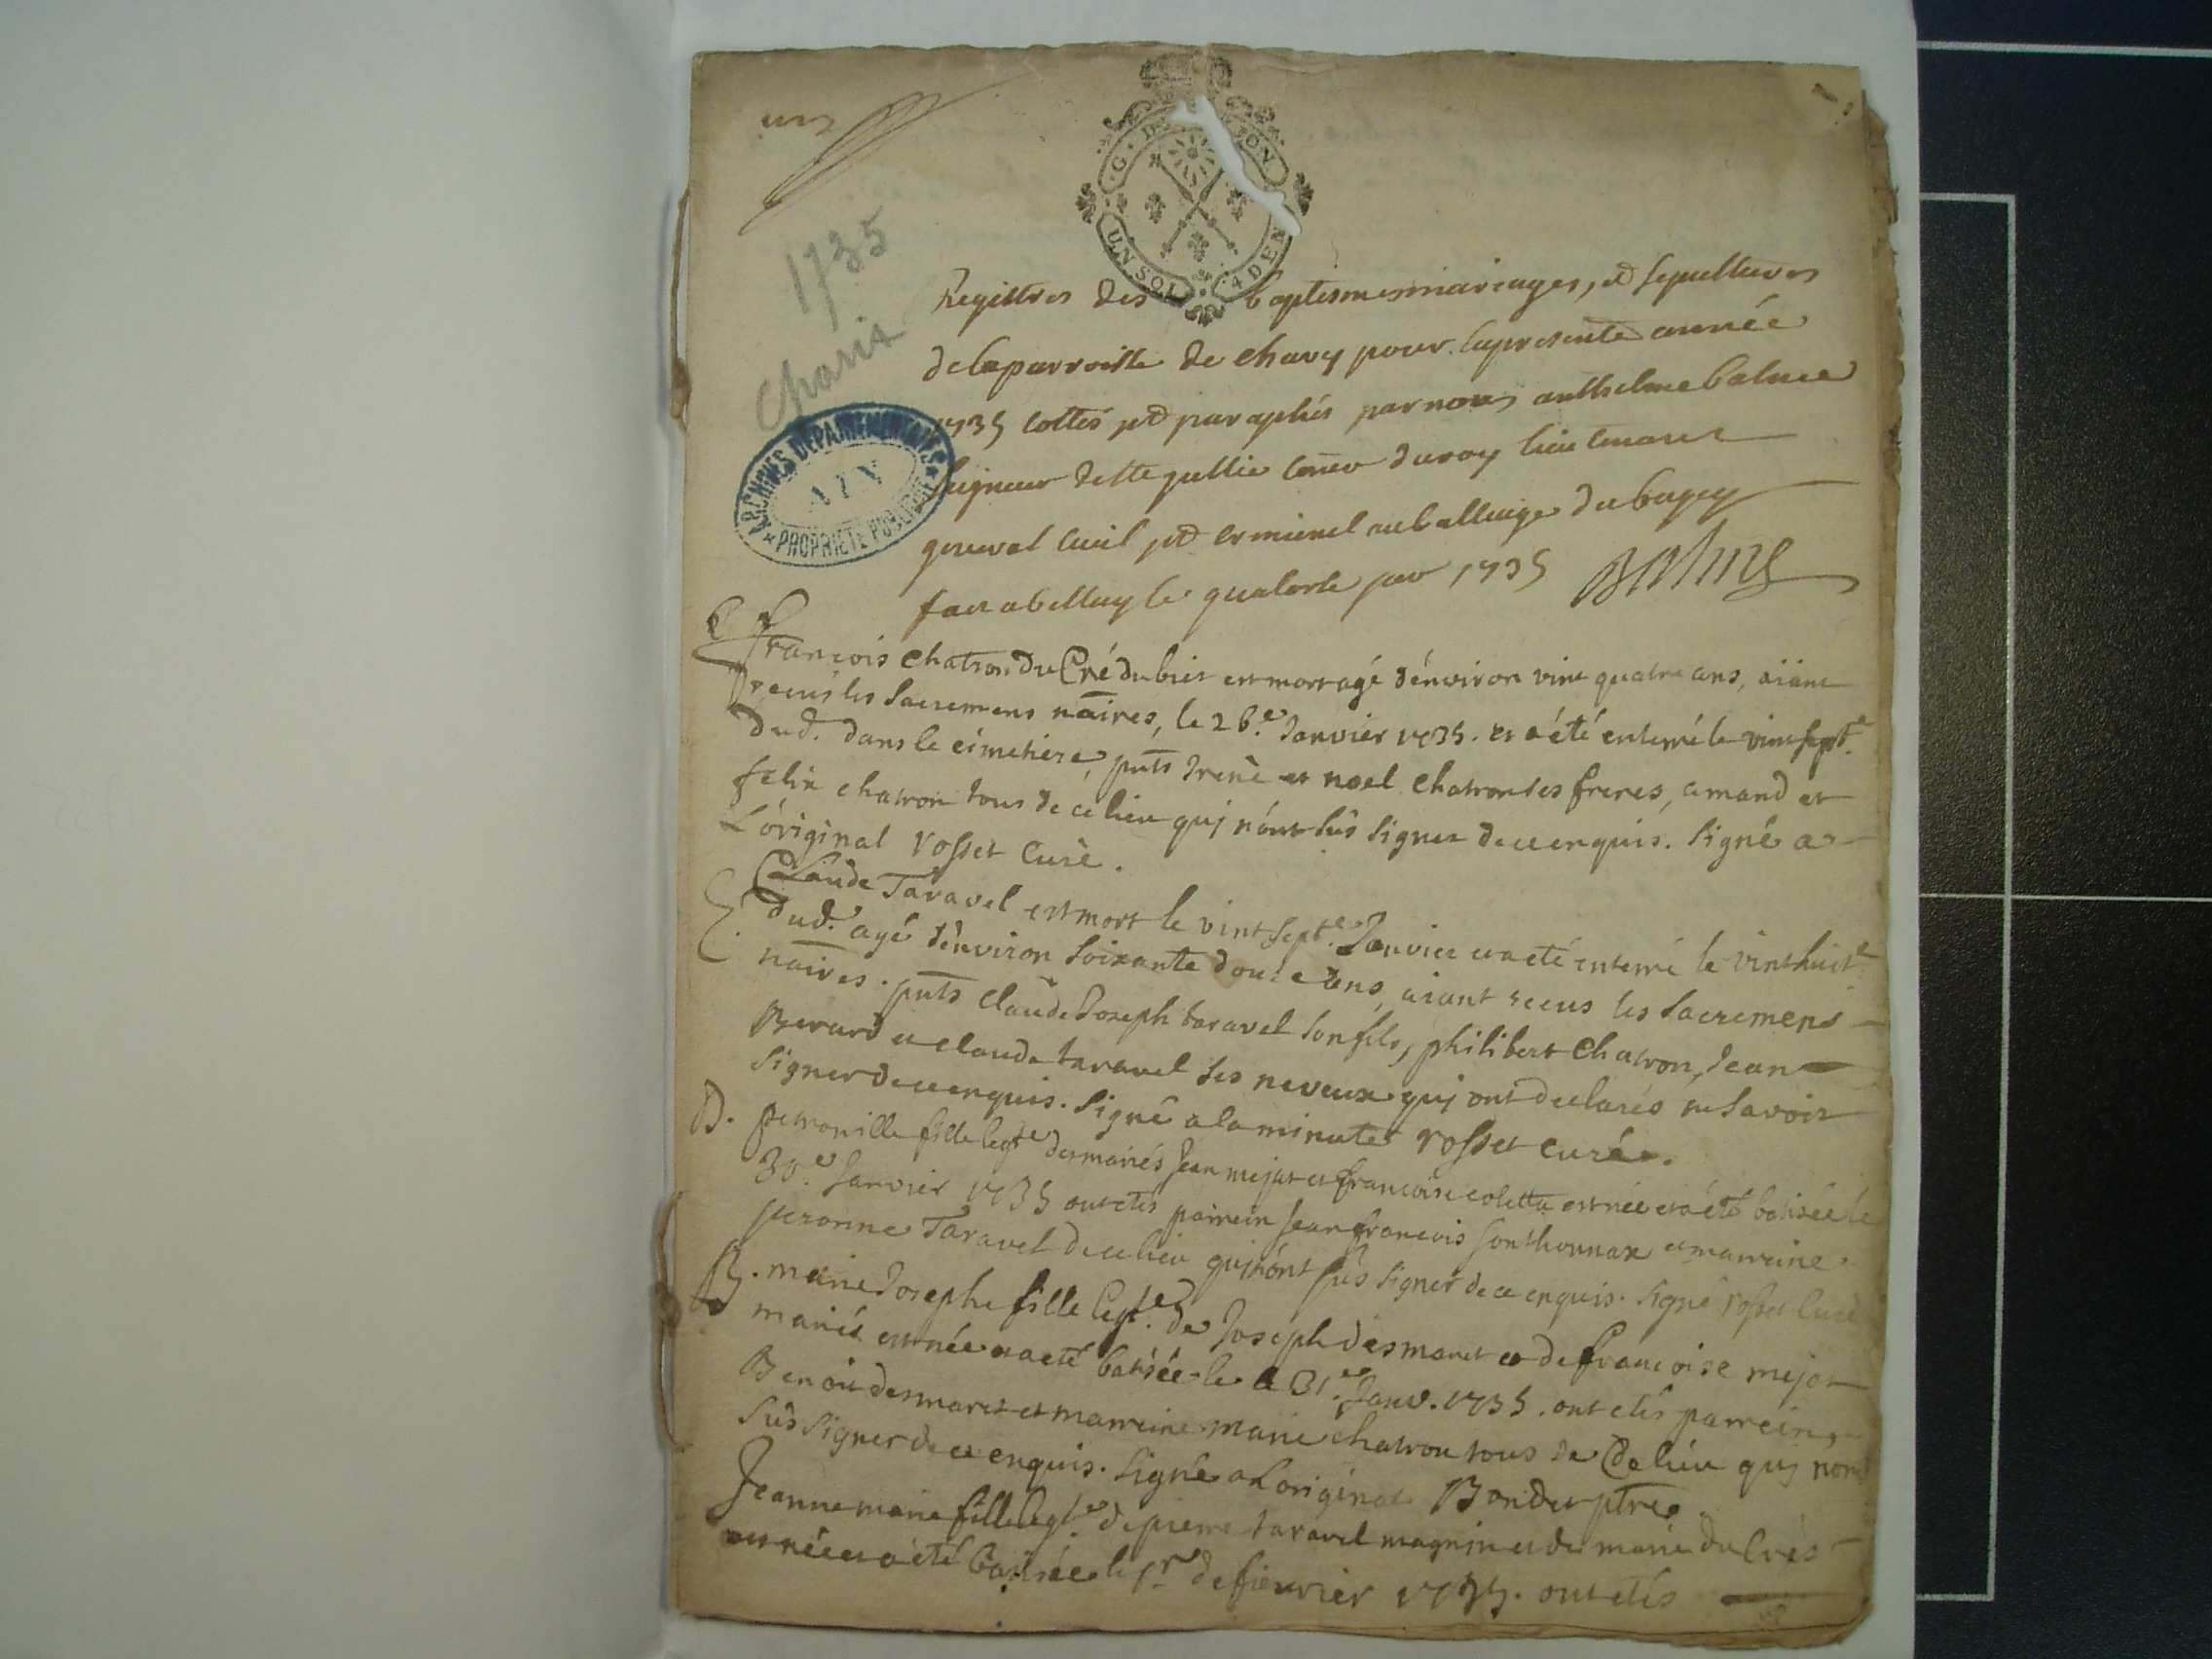 un
1735
Charix
G. D ON
UN SOL 4 DEN
ARCHIVES DEPARTEMENTALES
AIN
PROPRIETE PUBLIQUE
Registres des baptesmes mariages, et sepultures
de la parroisse de chary pour la presente année
1735 cottés et paraphés par nous anthelme balme
seigneur de Ste jullie coner du roy lieutenant
general civil et criminel au balliage du bugey
fait a belley le quatorse janv 1735 Balme
E françois Chatron du Cré du biet est mort agé d'énviron vint quatre ans, aiant
recus les Sacremens naires, le 26.e Janvier 1735. et a été enterré le vint sept.e
dud. dans le cimetiere, pnts irenè et noel chatron ses freres, amand et
felix chatron tous de ce lieu quj n'ont sûs signer de ce enquis. Signé a
L'original Rosset Curé.
E. Claude Taravel est mort le vint sept.e Janvier et a eté enterré le vint huit.e
dud. agé d'énviron soixante douze ans, aiant recus les Sacremens
naires. pnts Claude Joseph taravel son fils, philibert Chatron, Jean
Berard et claude taravel ses neveux quj ont declarés ne savoir
signer de ce enquis. Signé a la minute Rosset curé.
B. petronille fille legt.e des mariés Jean mejat et françoise coletta est née et a été batisée le
30.e Janvier 1735 ont etés parrein Jean francois Sonthonnax et marreine
peronne Taravel de ce lieu quj n'ónt sûs signer de ce enquis. Signé Rosset Curé
B. marie Josephe fille legt.e de Joseph desmaret et de françoise mejat
mariés est née et a eté batisée le 31.e Janv. 1735. ont etés parrein
Benoit desmaret et marreine marie chatron tous de Ce lieu quj nont
sûs signer de ce enquis. Signé a L'original Bondet ptre.
Jeanne marie fille legt.e de pierre taravel magnin et de marie du Crés
est née et a été batisée le 1.r de fievrier 1735. ont etés